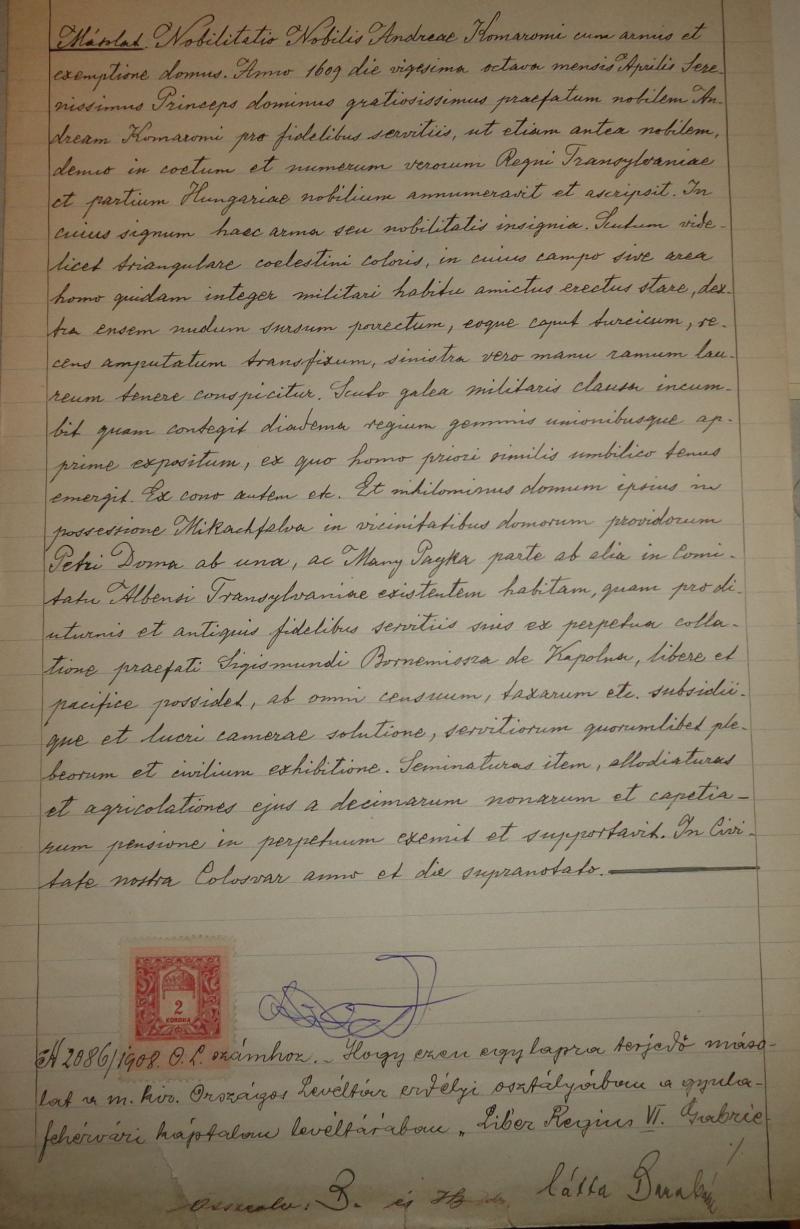 Másolat. Nobilitatio Nobilis Andreae Komaromi cum armis et
exemptione domus. Anno 1609 die vigesima octava mensis Aprilis Sere-
nissimus Princeps dominus gratiosissimus praefatum nobilem An-
dream Komaromi pro fidelibus servitiis, ut etiam antea nobilem,
denuo in coetum et numerum verorum Regni Transylvaniae
et partium Hungariae nobilium annumeravit et ascripsit. In
cuius signum haec arma seu nobilitatis insignia. Scutum vide-
licet triangulare coelestini coloris, in cuius campo sive area
homo quidam integer militari habitu amictus erectus stare, dex-
tra ensem nudum sursum porrectum, eoque caput turcicum, re-
cens amputatum transfixum, sinistra vero manu ramum lau-
reum tenere conspicitur. Scuto galea militaris clausa incum-
bit quam contegit diadema regium gemmis unionibusque ap-
prime expositum, ex quo homo priori similis umbilico tenus
emergit. Ex cono autem etc. Et nihilominus domum ipsius in
possessione Mikachfalva in vicinitatibus domorum providorum
Petri Doma ab una, ac Many Payka parte ab alia in Comi-
tatu Albensi Transylvaniae existentem habitam, quam pro di-
uturnis et antiquis fidelibus servitiis suis ex perpetua colla-
tione praefati Sigismundi Bornemissza de Kapolna, libere et
pacifice possidet, ab omni censuum, taxarum etc. subsidii-
que et lucri camerae solutione, servitiorum quorumlibet ple-
beorum et civilium exhibitione. Seminaturas item, allodiaturas
et agricolationes ejus a decimarum nonarum et capetia-
rum pensione in perpetuum exemit et supportavit. In Civi-
tate nostra Colosvar anno et die supranotato.
2
KORONA
2086/1908. O. L. számhoz. Hogy ezen egy lapra terjedő máso-
lat a m. kir. Országos Levéltár erdélyi osztályában a gyula-
fehérvári káptalan levéltárában „Liber Regius VI. Gabrie-
./.
és
látta